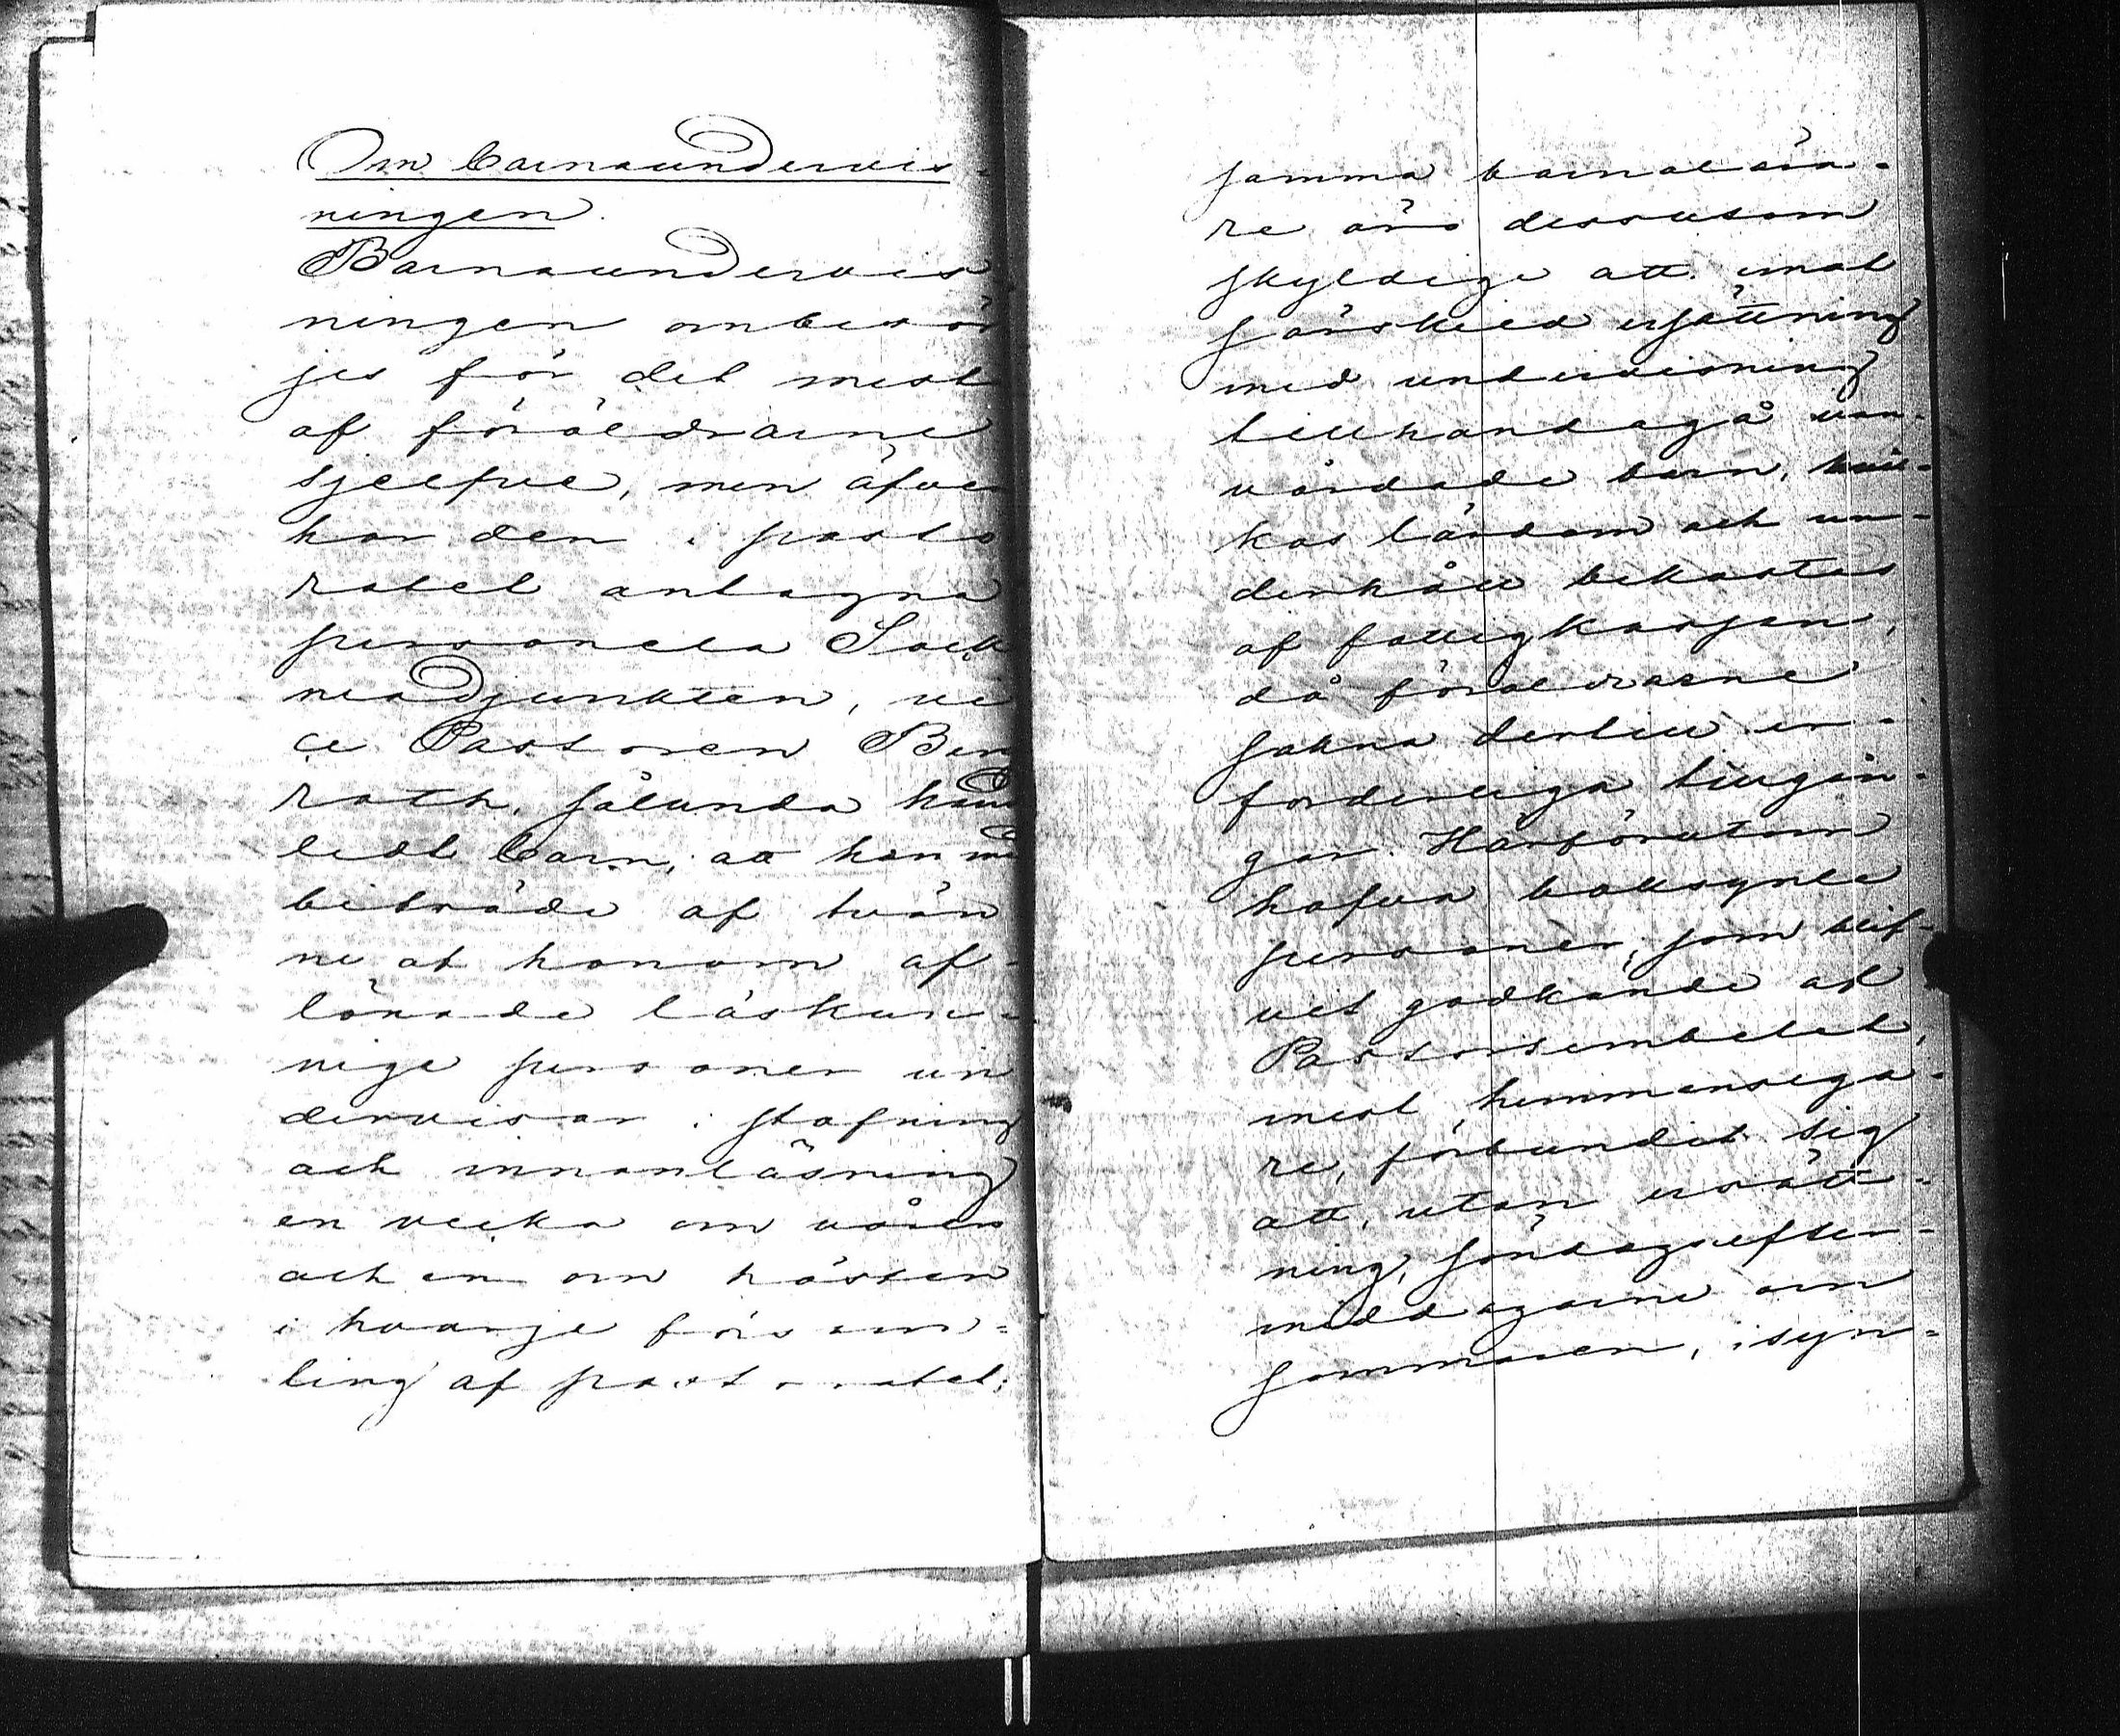 Om barnaundervis-
ningen.
Barnaundervis
ningen ombesör
jes för det mest
af föräldrarne
sjelfve, men äfve
har den i pasto
ratet antagna
personela Sock
neadjunkten, vi
ce Pastoren Ben
roth, sålunda hand
ledt barn, att han me
biträde af tvän
ne at honom af-
lönade läskun-
nige personer un
dervisar i stafning
och innanläsning
en vecka om våren
och en om hösten
i hvarje försam=
ling af pastoratet;
samma barnalära-
re äro dessutom
skyldige att emot
särskild ersättning
med undervisning
tillhandagå van-
vårdade barn, hvil-
kas lärdom och un-
derhåll bekostas
af fattigkassan,
då föräldrarne
sakna dertill er-
forderliga tillgån-
gar. Härförutom
hafva boksynte
personer, som blif-
vit godkände af
Pastorsembetet,
mest hemmansega-
re, förbundit sig
att, utan ersätt-
ning, söndagsefter-
middagarne om
sommaren, i syn-